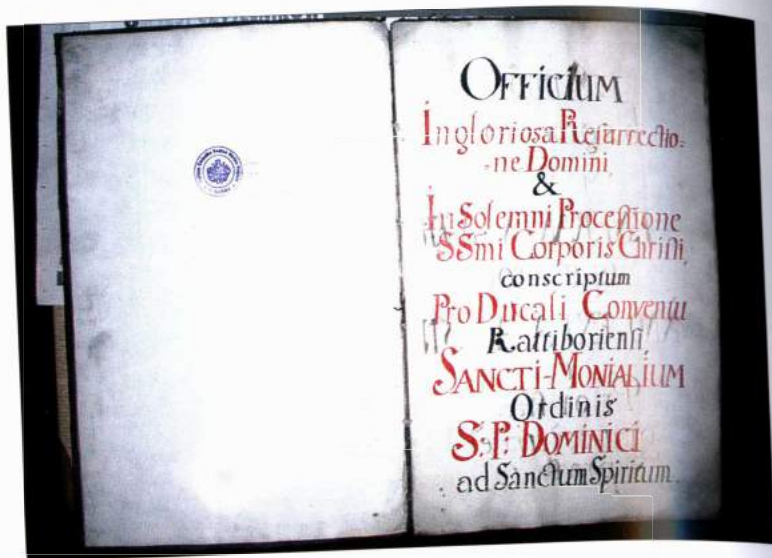 OFFICIUM
In gloriosa Resurrectio-
-ne Domini,
&
In Solemni Processione
SSmi Corporis Christi,
conscriptum
Pro Ducali Conventu
Rattiboriensi,
SANCTI-MONIALIUM
Ordinis
S. P. DOMINICI
ad Sanctum Spiritum.